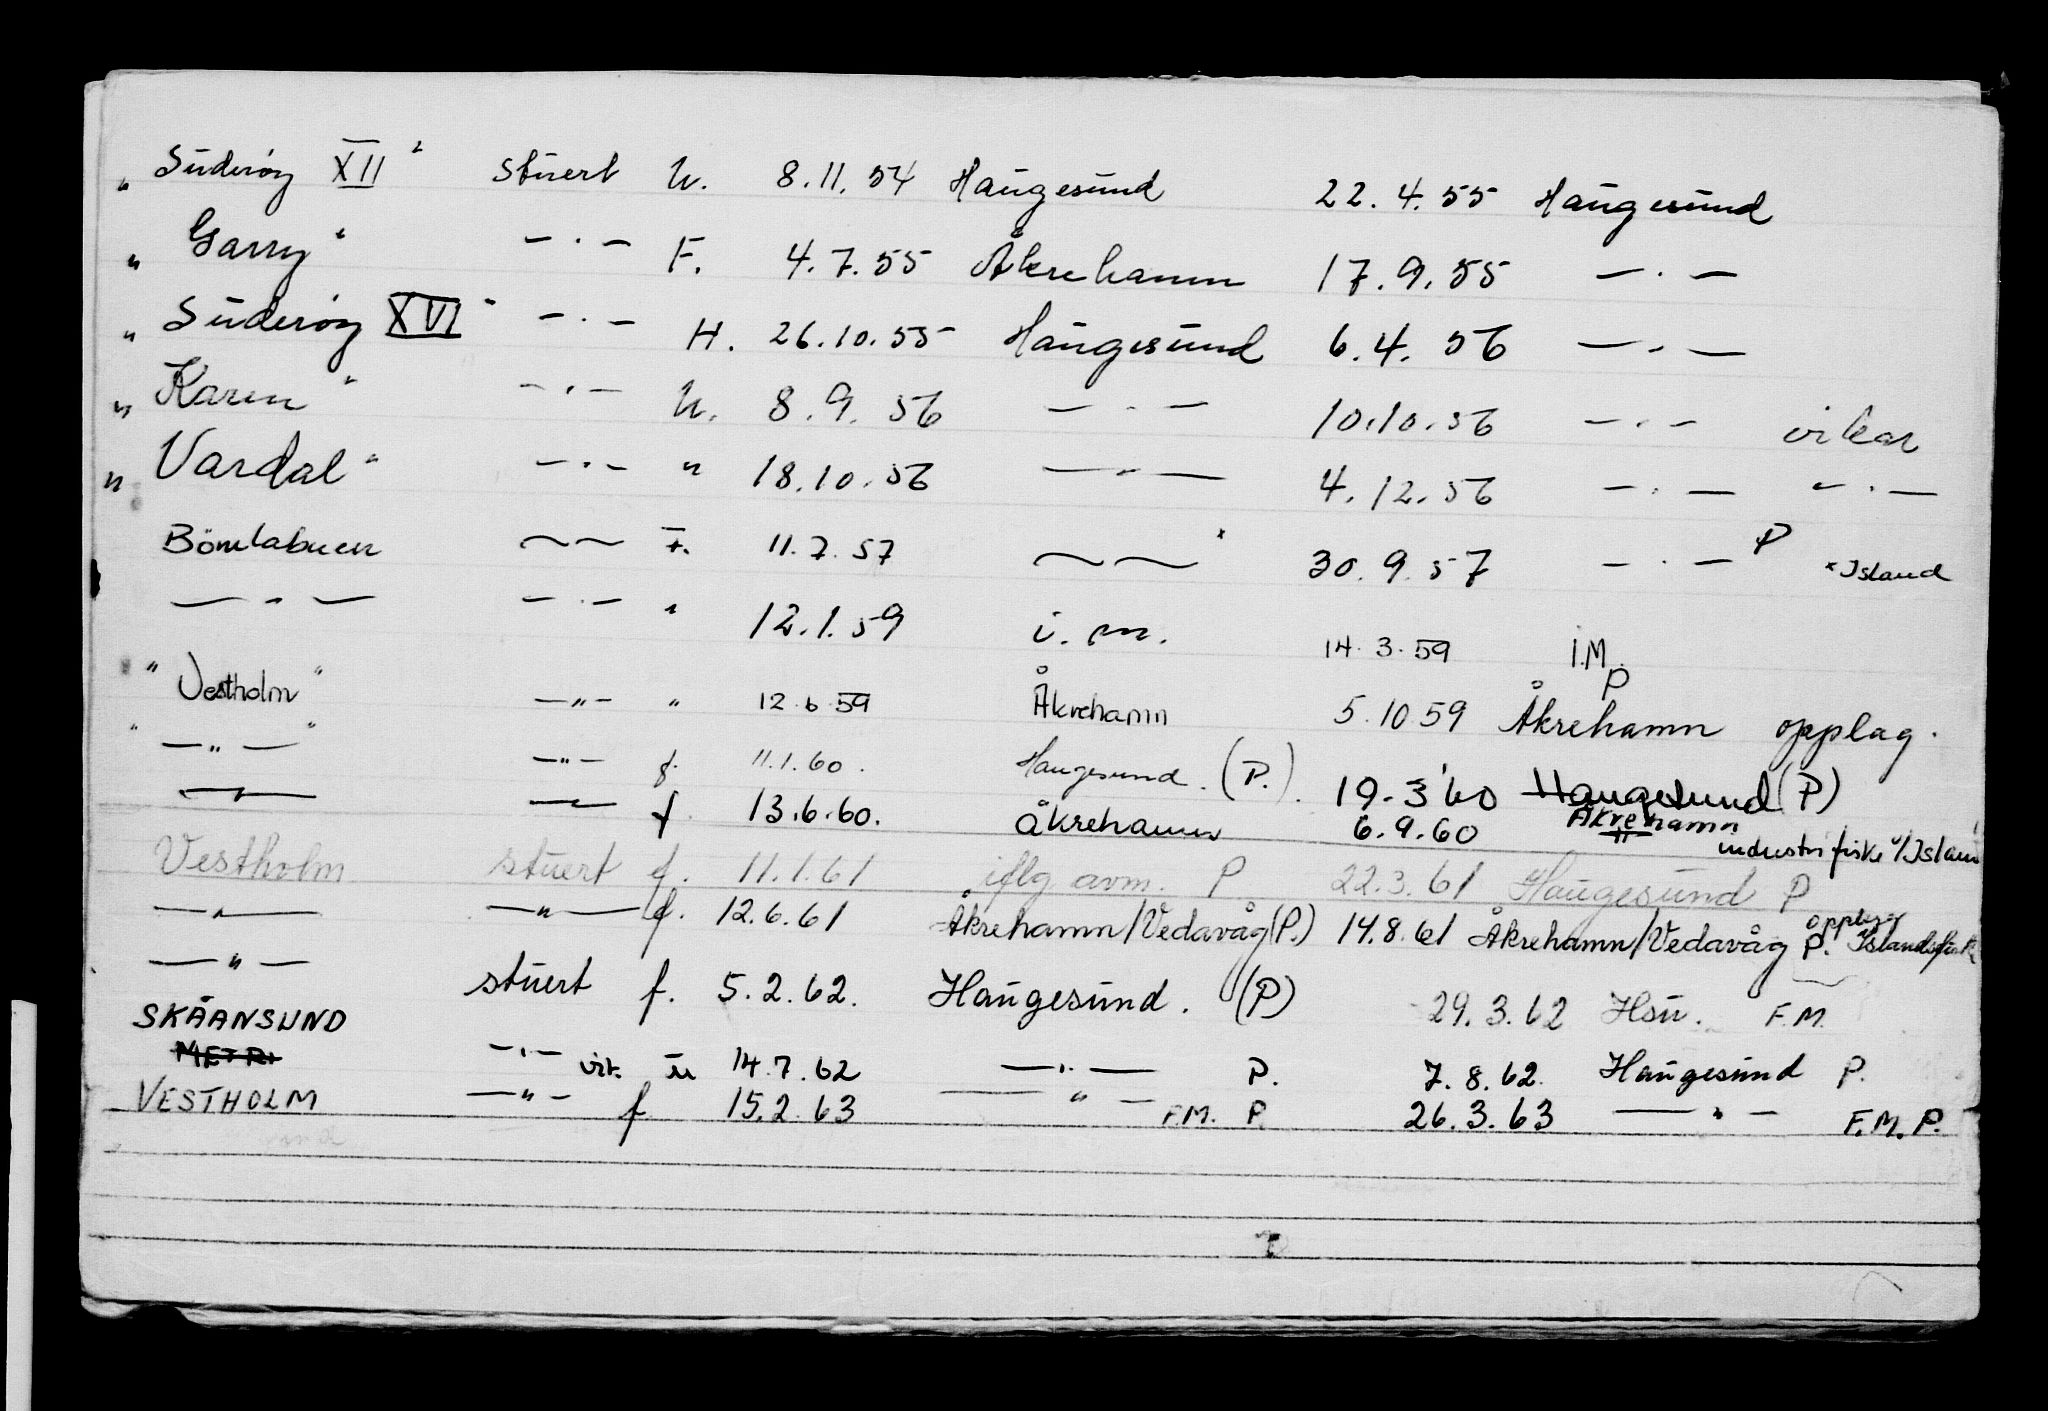 „ Süderöy XII " stüert U. 8.11.54 Haugesund 22.4.55 Haugesund
„ Garry " — · — F. 4.7.55 Åkrehamn 17.9.55 — · —
„ Süderöy XVI " — · — H. 26.10.55 Haugesund 6.4.56 — · —
„ Karen " — · — U. 8.9.56 — · — 10.10.56 — · — vikar
„ Vardal " — · — " 18.10.56 — " — 4.12.56 — · — — · —
Bömlabuen — — F. 11.7.57 — — x 30.9.57 — · — P x Island
— " — — · — " 12.1.59 i.m. 14.3.59 I.M.
" Vestholm " — " — " 12.6.59 Åkrehamn 5.10 59 Åkrehamn P opplag.
" — " — " — " — f. 11.1.60. Haugesund. (P.). 19.3.60 Haugesund (P)
— " — — " — f. 13.6.60. Åkrehamn 6.9.60 Åkrehamn industrifiske v/Island
Vestholm stüert f. 11.1.61 iflg avm. P 22.3.61 Haugesund P
— " — — " — f. 12.6.61 Åkrehamn/Vedavåg (P.) 14.8.61 Åkrehamn/Vedavåg P. opplag Islandsfiske
— " — stüert f. 5.2.62. Haugesund. (P) 29.3.62 Hsu. F.M.
SKÅANSUND
METRI — · — vik. u 14.7.62 — " — P. 7.8.62. Haugesund P.
VESTHOLM — " — f 15.2.63 — " — F.M. P. 26.3.63 — " — F.M.P.